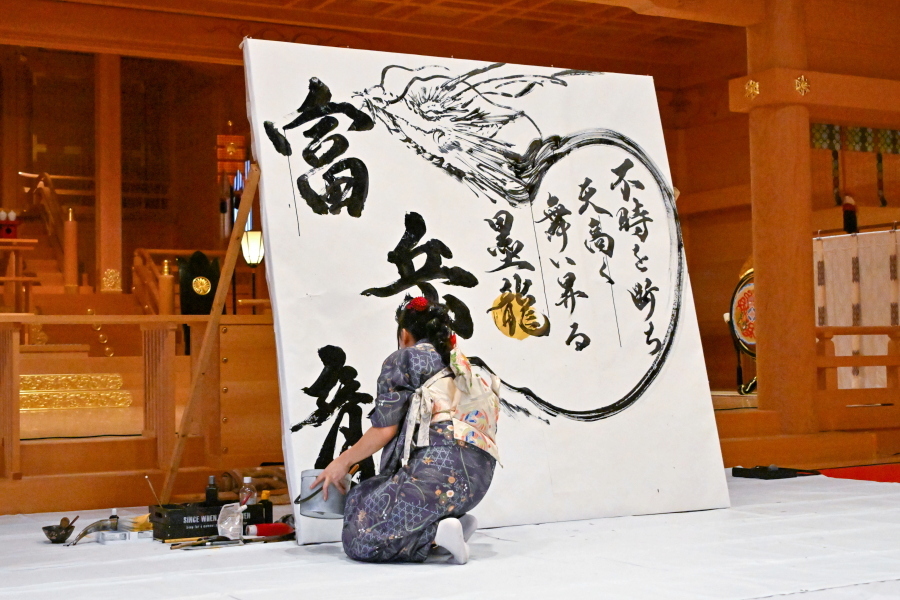 不時を断ち
天高く
舞い昇る
墨龍
富岳
SINCE WHEN